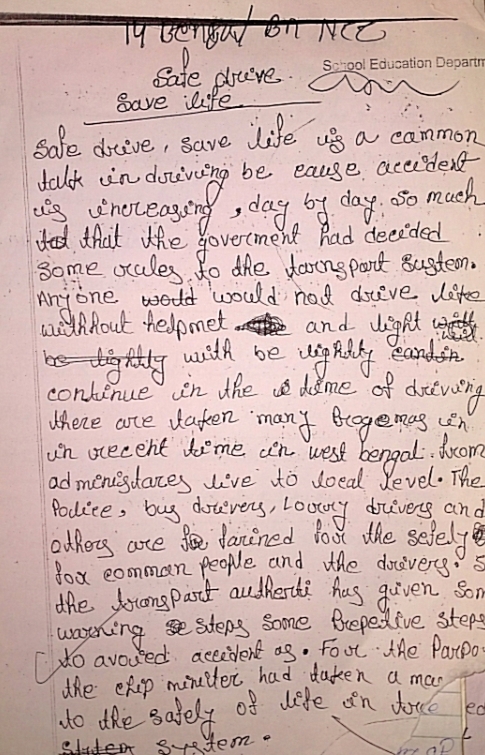 14 Bengal Bn NCC
School Education Departm
Safe drive.
Save life
Safe drive, save life is a common
talk in driving be cause accident
is increasing, day by day. So much
that the goverment had decided
some rules to the tarnspart system.
Anyone would not drive like
withhout helpmet and light
with be lightly
continue in the time of driving
there are taken many Progemas in
in recent time in west bengal. from
administares live to local level. The
Police, bus drivers, Lorery drivers and
others are tarined for the sefely
for common people and the drivers. S
the transpart autherti has given Som
warning steps some Prepetive steps
to avoied accident as. For the Parpo
the chip miniter had taken a mas
to the safely of life in
System.